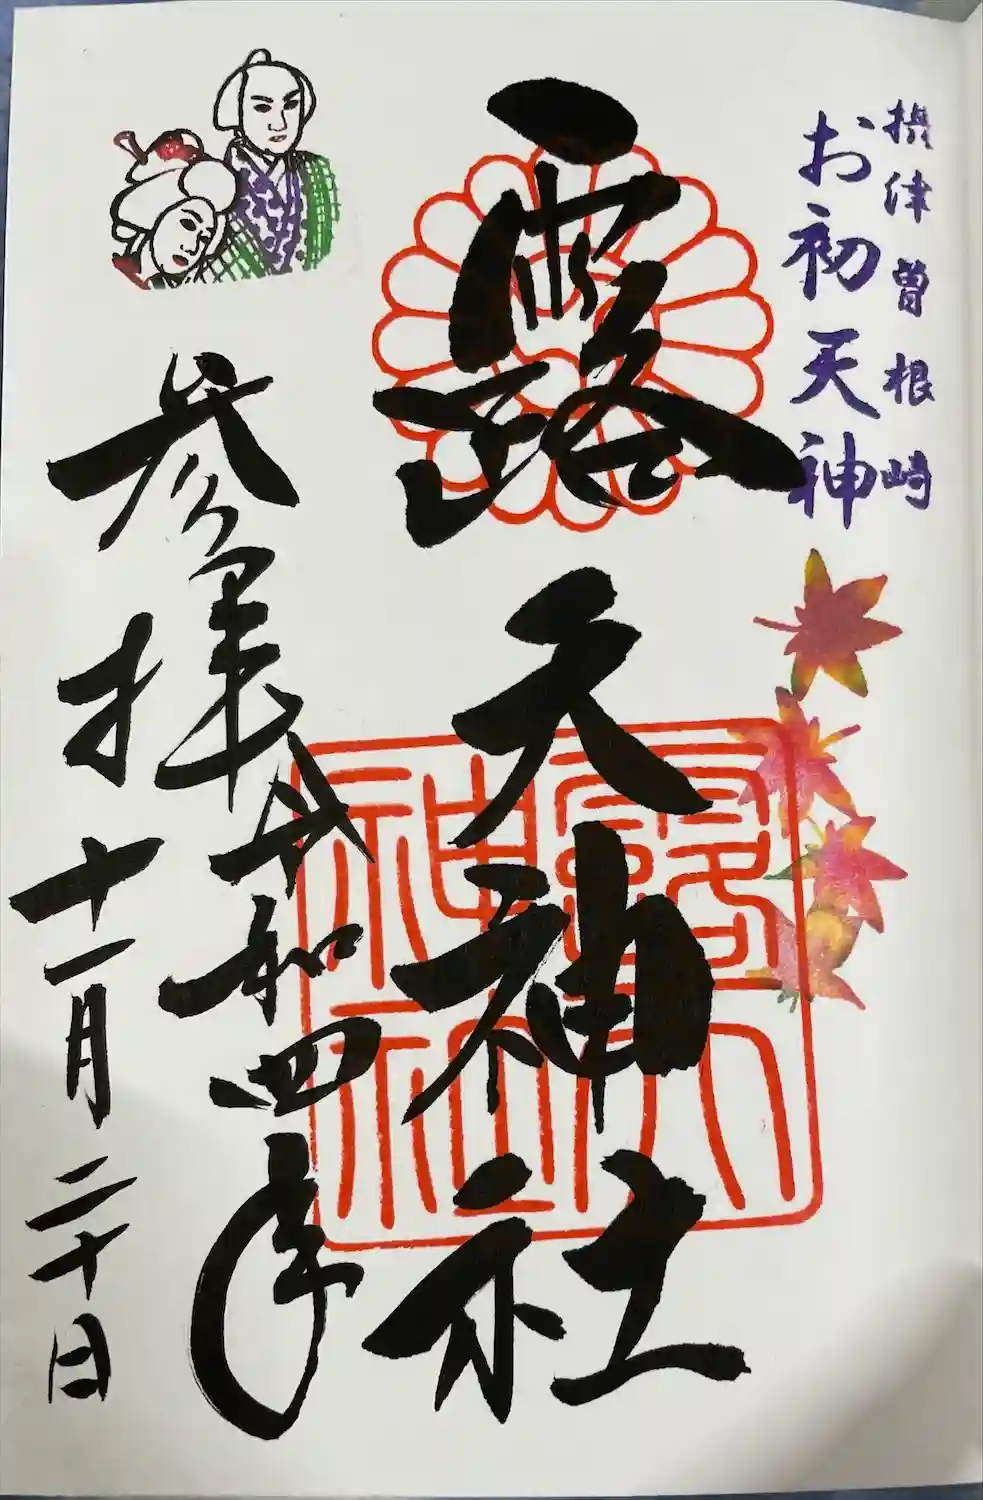 摂津曽根崎
お初天神
露天神社
参拝 令和四年
十一月二十日
露天
神社